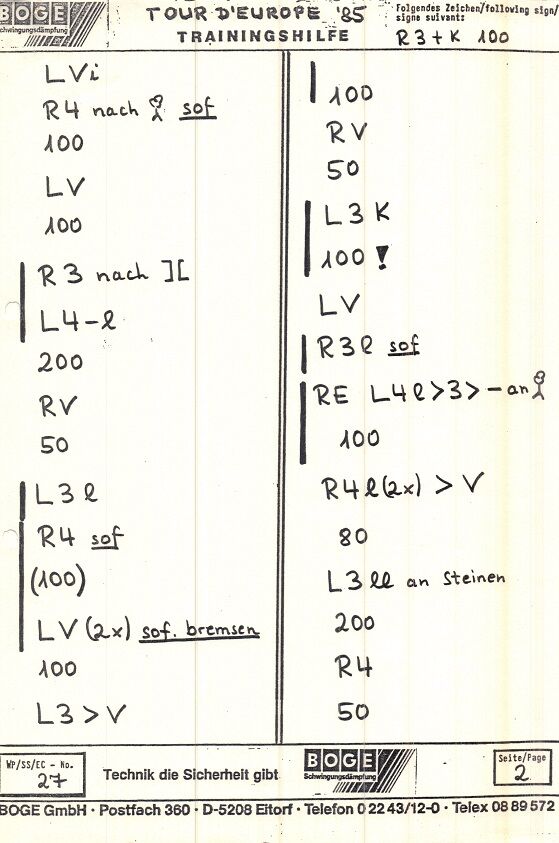 BOGE
Schwingungsdämpfung
TOUR D'EUROPE '85
TRAININGSHILFE
Folgendes Zeichen/following sign/
signe suivant:
R3+K 100
LVi
R4 nach sof
100
LV
100
R3 nach ][
L4-l
200
RV
50
L3 l
R4 sof
(100)
LV (2x) sof. bremsen
100
L3 > V
100
RV
50
L3 K
100 !
LV
R3 l sof
RE L4 l>3>- an
100
R4 l (2x) > V
80
L3 ll an Steinen
200
R4
50
WP/SS/EC - No.
27
Technik die Sicherheit gibt
BOGE
Schwingungsdämpfung
Seite/Page
2
BOGE GmbH · Postfach 360 · D-5208 Eitorf · Telefon 0 22 43/12-0 · Telex 08 89 572